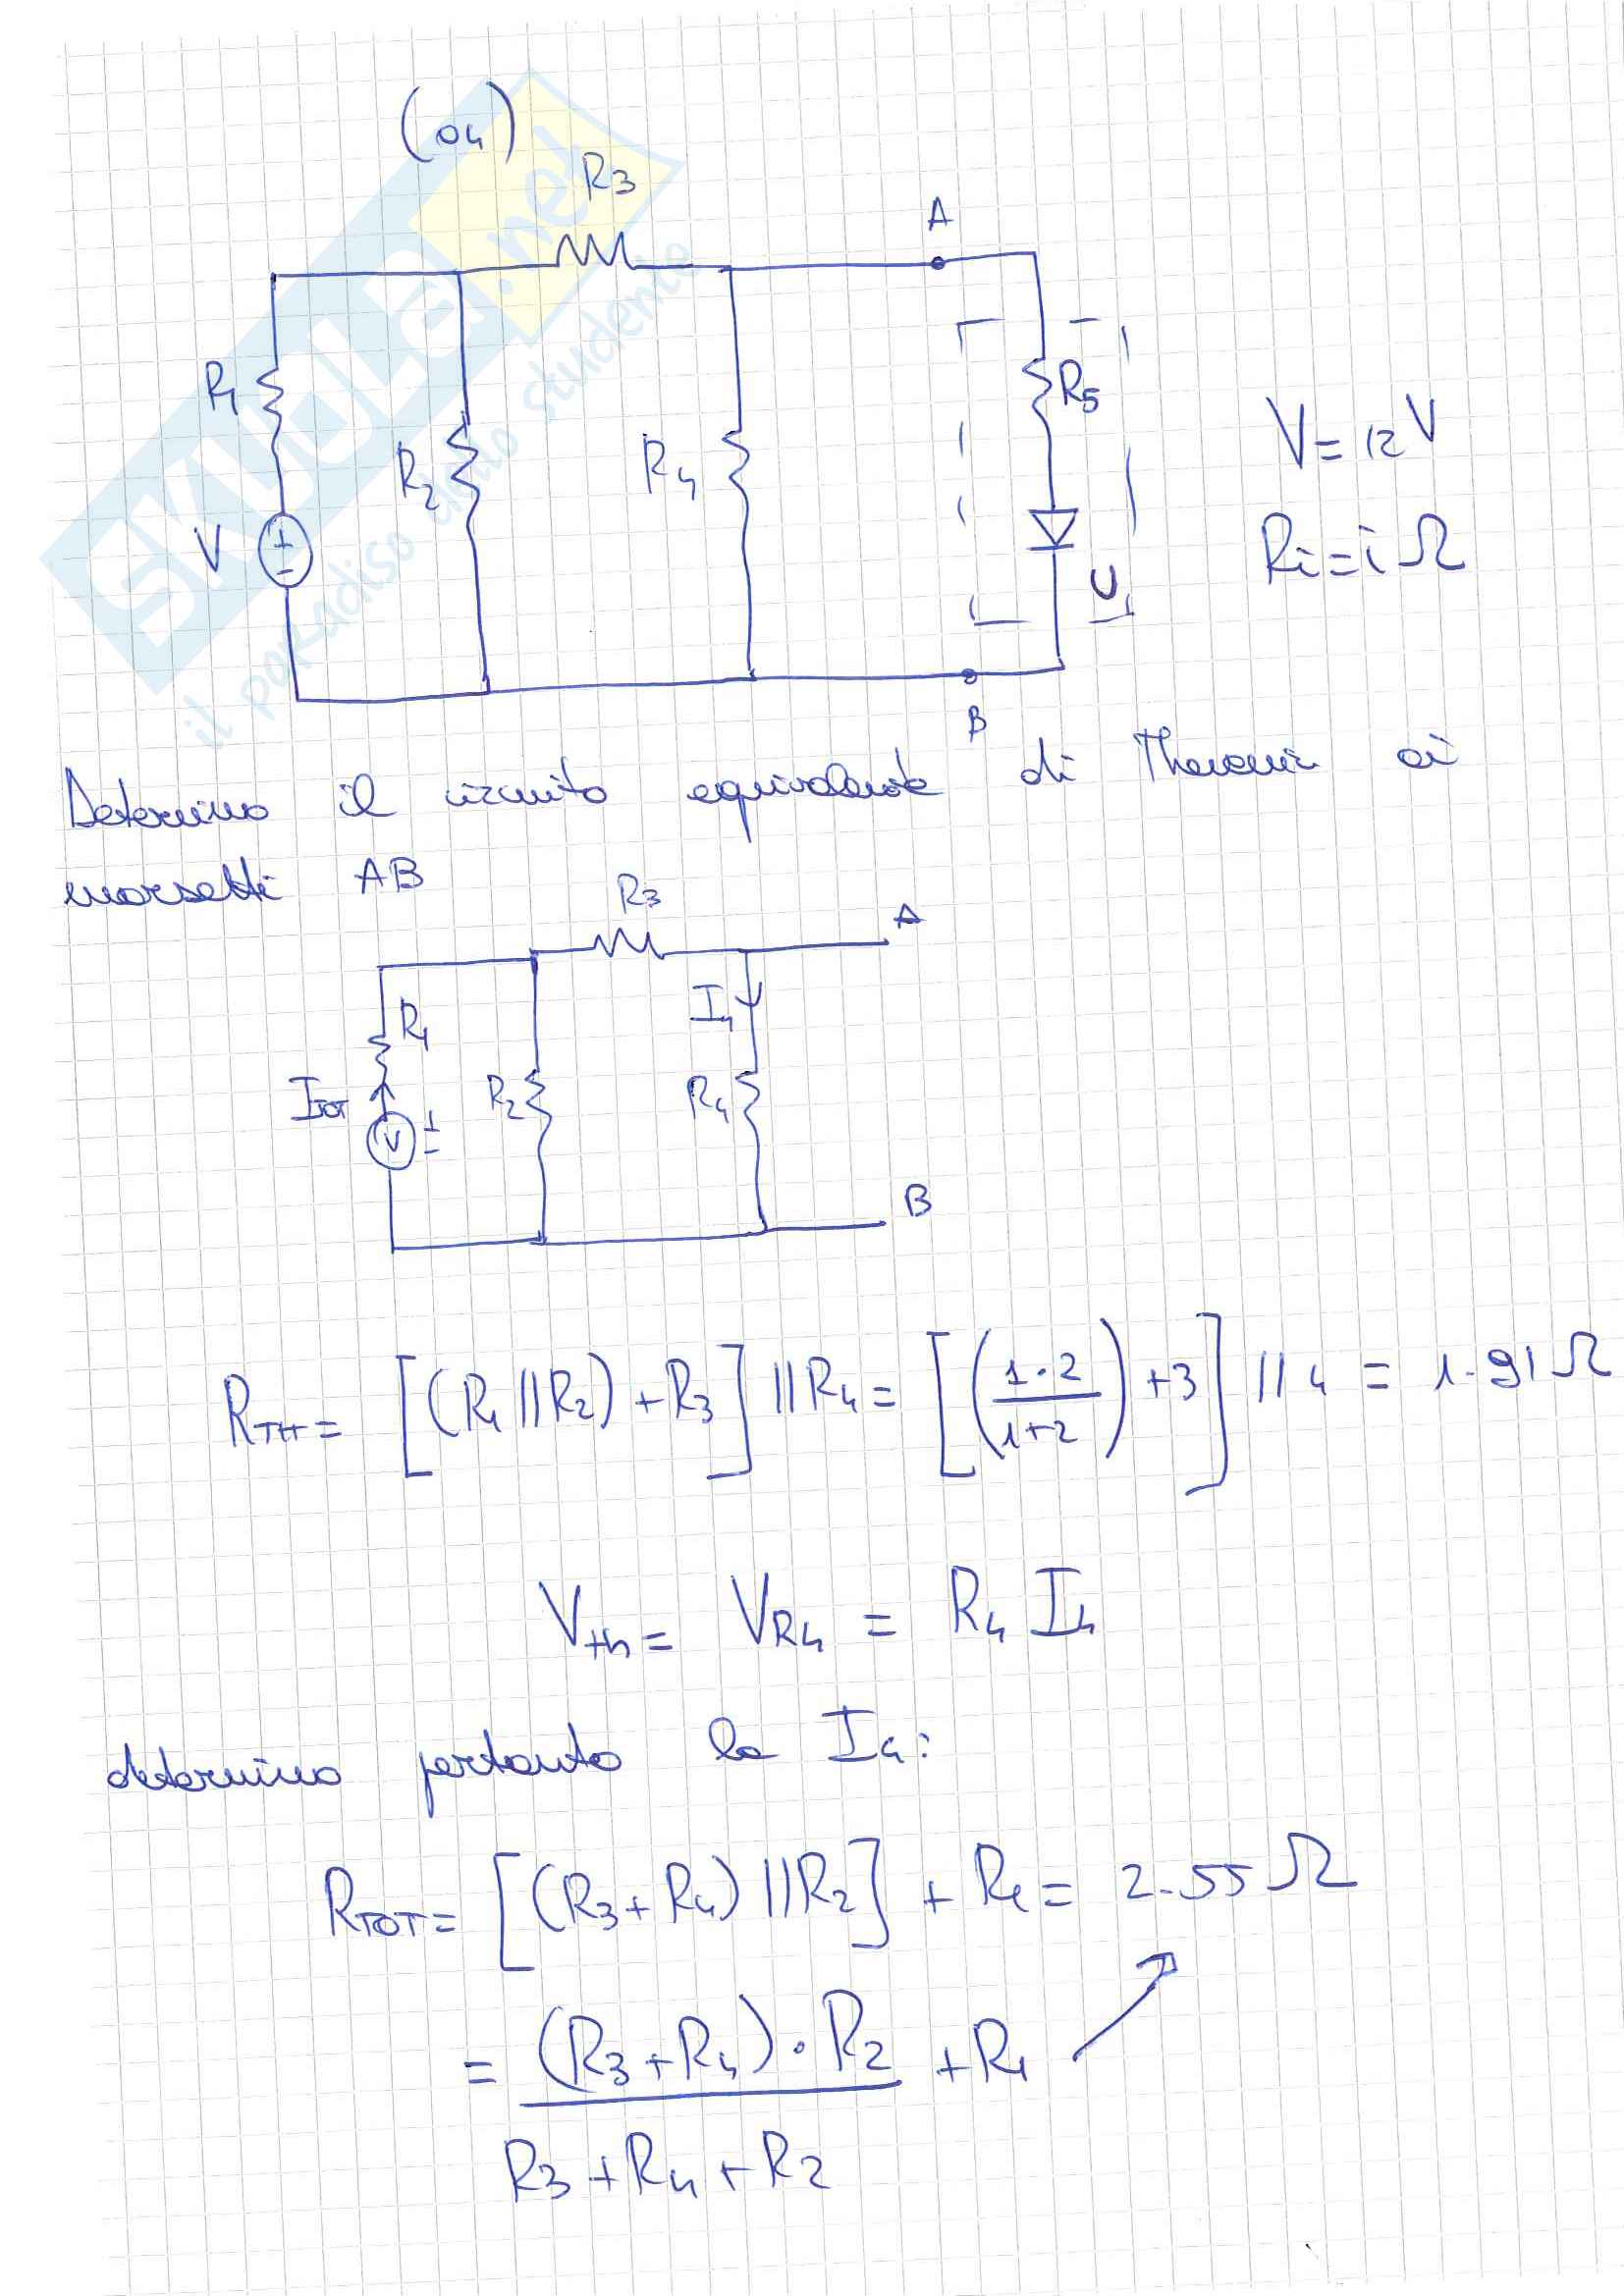 (04)
R3
A
R1
R2
R4
R5
V
+
-
U
V = 12 V
Ri = i Ω
B
Determino il circuito equivalente di Thevenin ai
morsetti AB
R3
A
R1
I4
ITOT
R2
R4
V
+
-
B
RTH = [(R1 || R2) + R3] || R4 = [(1·2 / 1+2) + 3] || 4 = 1.91 Ω
Vth = VR4 = R4 I4
determino pertanto la I4:
RTOT = [(R3 + R4) || R2] + R1 = 2.55 Ω
= (R3 + R4) · R2 / R3 + R4 + R2 + R1
SKUOLA.net
il paradiso dello studente